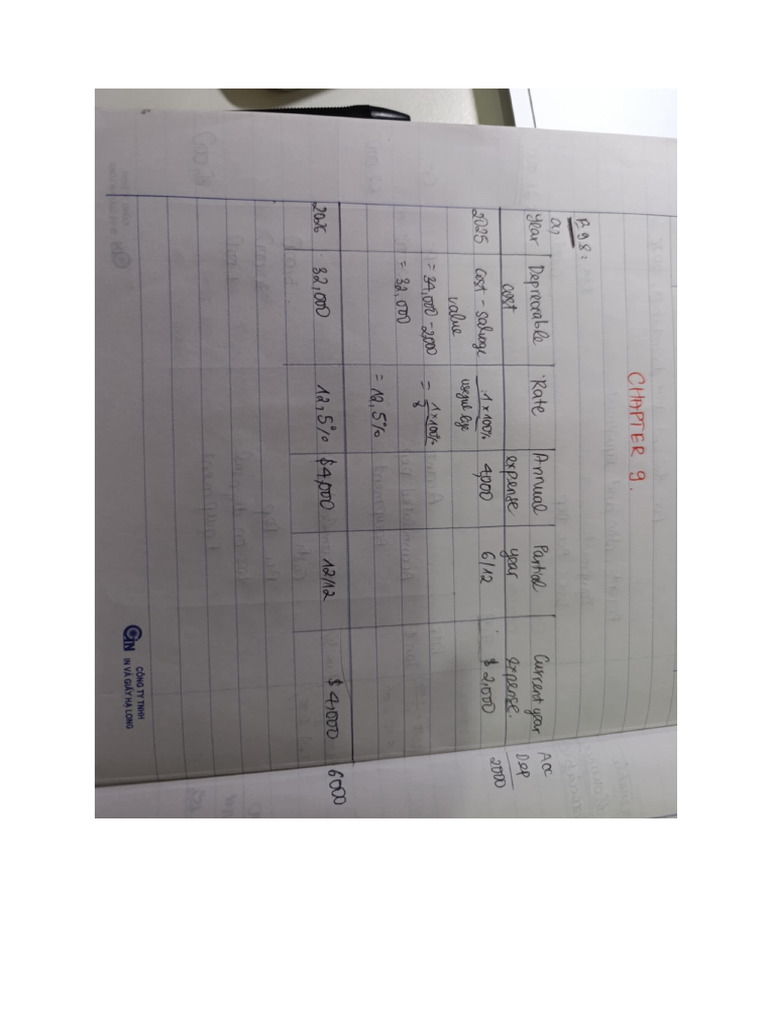 CHAPTER 9.
E 9.8:
a,
Year Depreciable cost Rate Annual expense Partial year Current year expense. Acc Dep
2025 cost - salvage value 1 x 100% / useful life 4,000 6/12 $ 2,000 2000
= 34,000 - 2,000 = 1 x 100% / 8
= 32,000 = 12,5%
2026 32,000 12,5% $4,000 12/12 $ 4,000 6000
CÔNG TY TNHH
IN VÀ GIẤY HẠ LONG